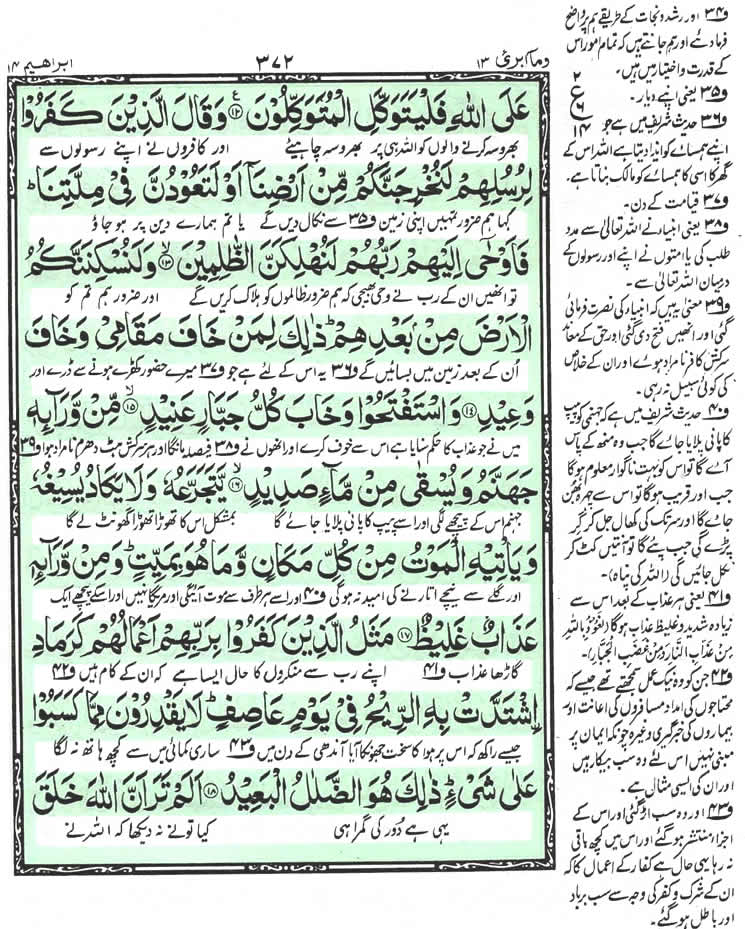 وما ابرئ ۱۳
۳۷۲
ابراهيم ۱۴
عَلَى اللّٰهِ فَلْيَتَوَكَّلِ الْمُتَوَكِّلُوْنَ ۱۲ ع وَقَالَ الَّذِيْنَ كَفَرُوْا
بھروسہ کرنے والوں کو اللہ ہی پر بھروسہ چاہیئے اور کافروں نے اپنے رسولوں سے
لِرُسُلِهِمْ لَنُخْرِجَنَّكُمْ مِّنْ اَرْضِنَآ اَوْ لَتَعُوْدُنَّ فِيْ مِلَّتِنَا ط
کہا ہم ضرور تمہیں اپنی زمین و۳۵ سے نکال دیں گے یا تم ہمارے دین پر ہو جاؤ
فَاَوْحٰٓى اِلَيْهِمْ رَبُّهُمْ لَنُهْلِكَنَّ الظّٰلِمِيْنَ ۱۳ لا وَلَنُسْكِنَنَّكُمُ
تو انھیں ان کے رب نے وحی بھیجی کہ ہم ضرور ظالموں کو ہلاک کریں گے اور ضرور ہم تم کو
الْاَرْضَ مِنْۢ بَعْدِهِمْ ط ذٰلِكَ لِمَنْ خَافَ مَقَامِيْ وَخَافَ
اُن کے بعد زمین میں بسائیں گے و۳۶ یہ اس کے لئے ہے جو و۳۷ میرے حضور کھڑے ہونے سے ڈرے اور
وَعِيْدِ ۱۴ وَاسْتَفْتَحُوْا وَخَابَ كُلُّ جَبَّارٍ عَنِيْدٍ ۱۵ لا مِّنْ وَّرَآئِهٖ
میں نے جو عذاب کا حکم سنایا ہے اس سے خوف کرے اور انھوں نے و۳۸ فیصلہ مانگا اور ہر سرکش ہٹ دھرم نامراد ہوا و۳۹
جَهَنَّمُ وَيُسْقٰى مِنْ مَّآءٍ صَدِيْدٍ ۱۶ لا يَّتَجَرَّعُهٗ وَلَا يَكَادُ يُسِيْغُهٗ
جہنم اس کے پیچھے لگی اور اسے پیپ کا پانی پلایا جائے گا بمشکل اس کا تھوڑا تھوڑا گھونٹ لے گا
وَيَاْتِيْهِ الْمَوْتُ مِنْ كُلِّ مَكَانٍ وَّمَا هُوَ بِمَيِّتٍ ط وَمِنْ وَّرَآئِهٖ
اور گلے سے نیچے اتارنے کی امید نہ ہوگی و۴۰ اور اسے ہر طرف سے موت آئیگی اور مریگا نہیں اور اسکے پیچھے ایک
عَذَابٌ غَلِيْظٌ ۱۷ مَثَلُ الَّذِيْنَ كَفَرُوْا بِرَبِّهِمْ اَعْمَالُهُمْ كَرَمَادِ
گاڑھا عذاب و۴۱ اپنے رب سے منکروں کا حال ایسا ہے کہ ان کے کام ہیں و۴۲
ِۨاشْتَدَّتْ بِهِ الرِّيْحُ فِيْ يَوْمٍ عَاصِفٍ ط لَا يَقْدِرُوْنَ مِمَّا كَسَبُوْا
جیسے راکھ کہ اس پر ہوا کا سخت جھونکا آیا آندھی کے دن میں و۴۳ ساری کمائی میں سے کچھ ہاتھ نہ لگا
عَلٰى شَيْءٍ ط ذٰلِكَ هُوَ الضَّلٰلُ الْبَعِيْدُ ۱۸ اَلَمْ تَرَ اَنَّ اللّٰهَ خَلَقَ
یہی ہے دُور کی گمراہی کیا تو نے نہ دیکھا کہ اللہ نے
و۳۴ اور رشد و نجات کے طریقے ہم پر واضح
فرما دئے اور ہم جانتے ہیں کہ تمام امور اس
کے قدرت و اختیار میں ہیں۔
۲
ع
۶
۱۴
و۳۵ یعنی اپنے دیار۔
و۳۶ حدیث شریف میں ہے جو
اپنے ہمسائے کو ایذا دیتا ہے اللہ اس کے
گھر کا اسی کا ہمسائے کو مالک بناتا ہے۔
و۳۷ قیامت کے دن۔
و۳۸ یعنی انبیاء نے اللہ تعالیٰ سے مدد
طلب کی یا امتوں نے اپنے اور رسولوں کے
درمیان اللہ تعالیٰ سے۔
و۳۹ معنی یہ ہیں کہ انبیاء کی نصرت فرمائی
گئی اور انھیں فتح دی گئی اور حق کے معاند
سرکش کافر نامراد ہوئے اور ان کے خلاص
کی کوئی سبیل نہ رہی۔
و۴۰ حدیث شریف میں ہے کہ جہنمی کو پیپ
کا پانی پلایا جائے گا جب وہ منھ کے پاس
آئے گا تو اس کو بہت ناگوار معلوم ہوگا
جب اور قریب ہوگا تو اس سے چہرہ بھن
جائے گا اور سر تک کی کھال جل کر گر
پڑے گی جب پئے گا تو آنتیں کٹ کر
نکل جائیں گی (اللہ کی پناہ)۔
و۴۱ یعنی ہر عذاب کے بعد اس سے
زیادہ شدید و غلیظ عذاب ہوگا (نَعُوْذُ بِاللّٰهِ
مِنْ عَذَابِ النَّارِ وَمِنْ غَضَبِ الْجَبَّارِ)۔
و۴۲ جن کو وہ نیک عمل سمجھتے تھے جیسے کہ
محتاجوں کی امداد مسافروں کی اعانت اور
بیماروں کی خبر گیری وغیرہ چونکہ ایمان پر
مبنی نہیں اس لئے وہ سب بیکار ہیں
اور ان کی ایسی مثال ہے۔
و۴۳ اور وہ سب اڑ گئی اور اس کے
اجزا منتشر ہو گئے اور اس میں کچھ باقی
نہ رہا یہی حال ہے کفار کے اعمال کا کہ
ان کے شرک و کفر کی وجہ سے سب برباد
اور باطل ہو گئے۔